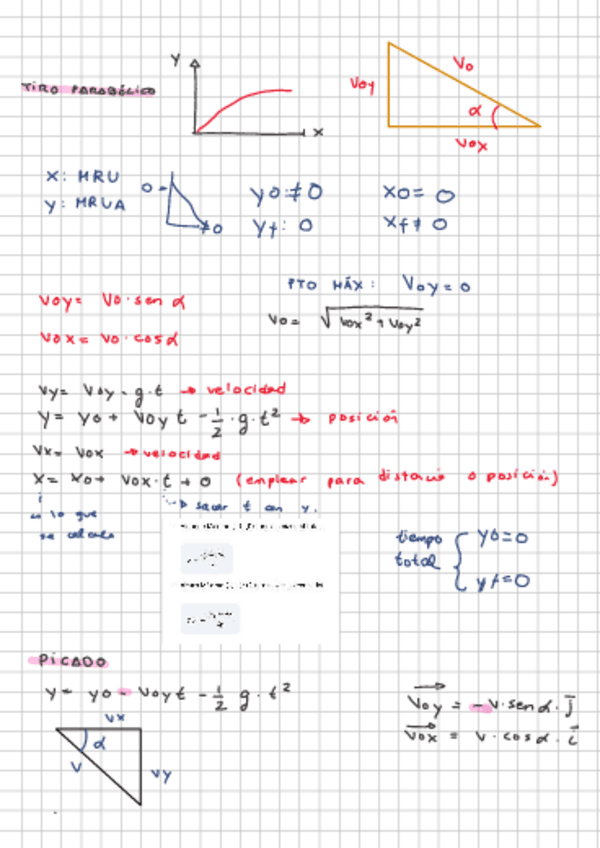 TIRO PARABÓLICO
Y
X
Vo
Voy
α
Vox
X: MRU
Y: MRUA
0
≠0
yo ≠ 0
Yf: 0
Xo = 0
Xf ≠ 0
PTO MÁX: Voy = 0
Voy = Vo · sen α
Vox = Vo · cos α
Vo = √Vox² + Voy²
Vy = Voy - g·t → velocidad
Y = Yo + Voy t - 1/2 · g · t² → posición
Vx = Vox → velocidad
X = Xo + Vox · t + 0 (emplear para distancia o posición)
→ sacar t en y.
es lo que
se calcula
tiempo
total
Yo = 0
Yf = 0
PICADO
Y = yo - Voy t - 1/2 g · t²
Voy = - V · sen α · j
Vox = V · cos α · i
Vx
α
V
Vy